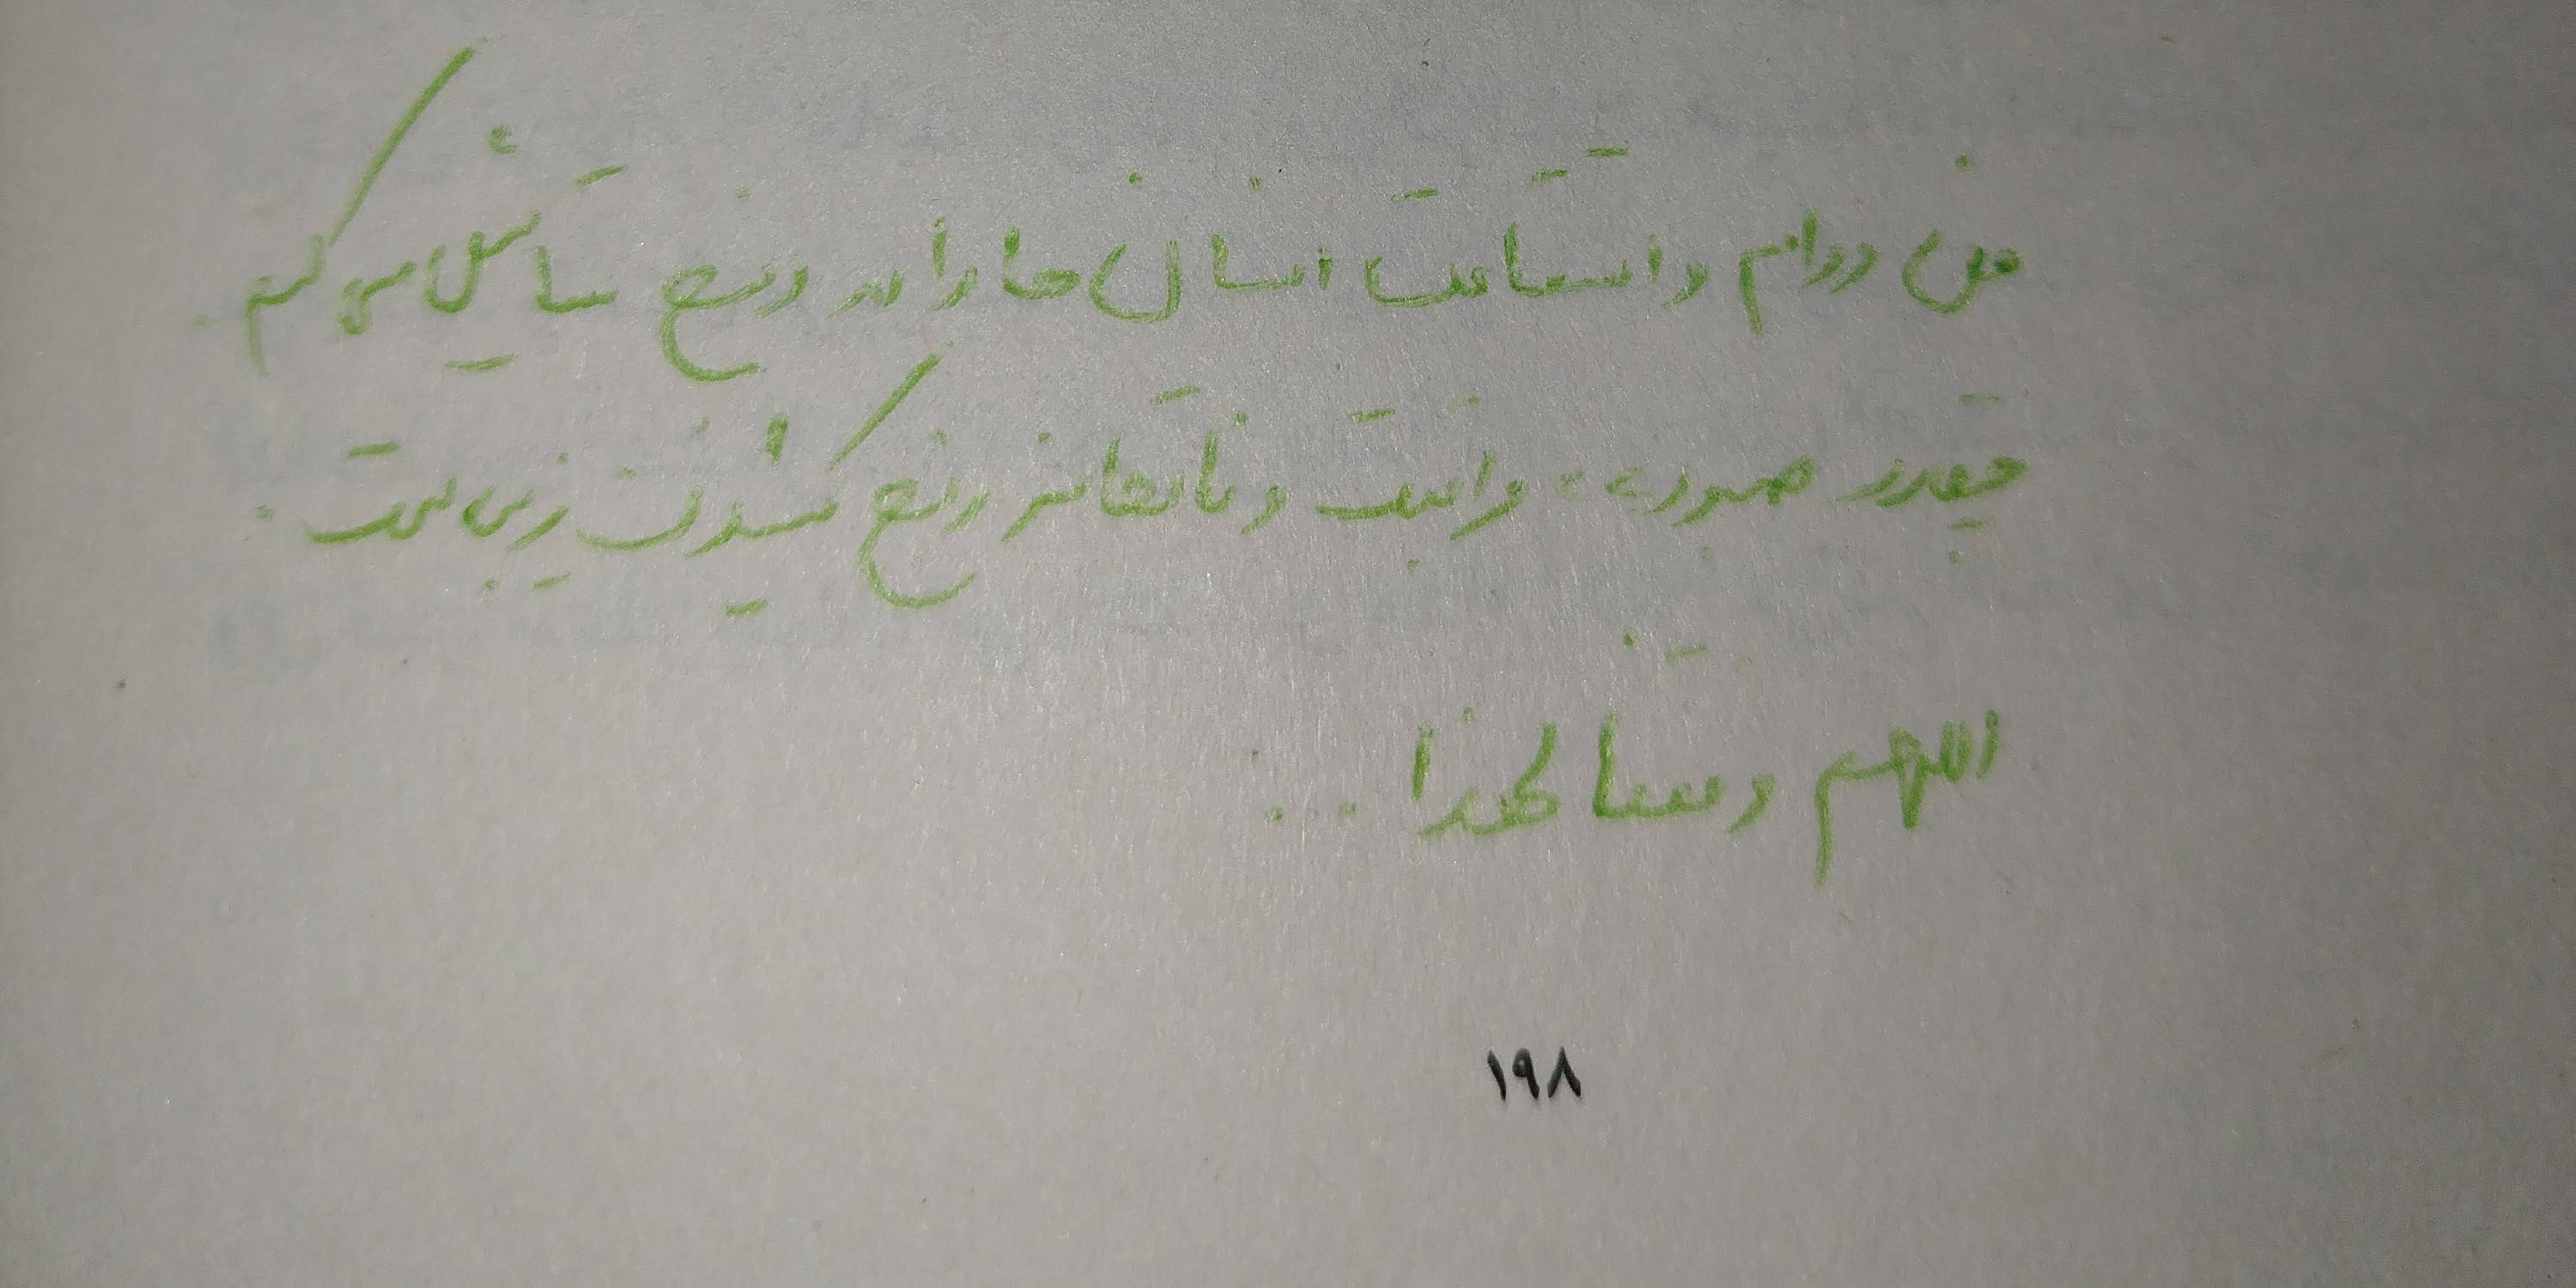 من دوام و استقامت انسان‌ها را در رنج ستایش می‌کنم.
چقدر صبورند، نجابت و عاشقانه رنج کشیدن زیباست.
اللهم وفقنا لهذا...
۱۹۸